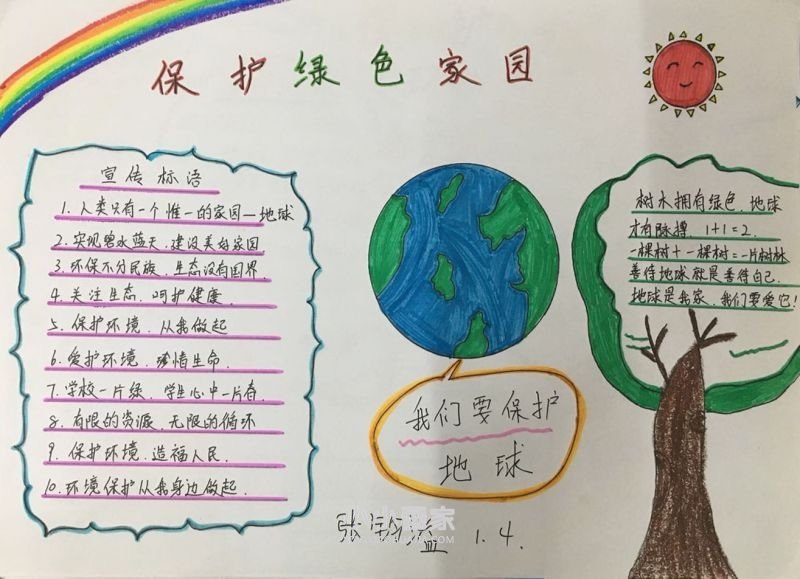 保护绿色家园
宣传标语
1. 人类只有一个惟一的家园—地球
2. 实现碧水蓝天,建设美好家园
3. 环保不分民族,生态没有国界.
4. 关注生态,呵护健康.
5. 保护环境,从我做起
6. 爱护环境,珍惜生命.
7. 学校一片绿,学生心中一片
8. 有限的资源,无限的循环
9. 保护环境,造福人民.
10. 环境保护从我身边做起.
我们要保护
地球
树木拥有绿色,地球
才有脉搏, 1+1=2.
一棵树+一棵树=一片树林
善待地球就是善待自己.
地球是我家,我们要爱它!
1.4.